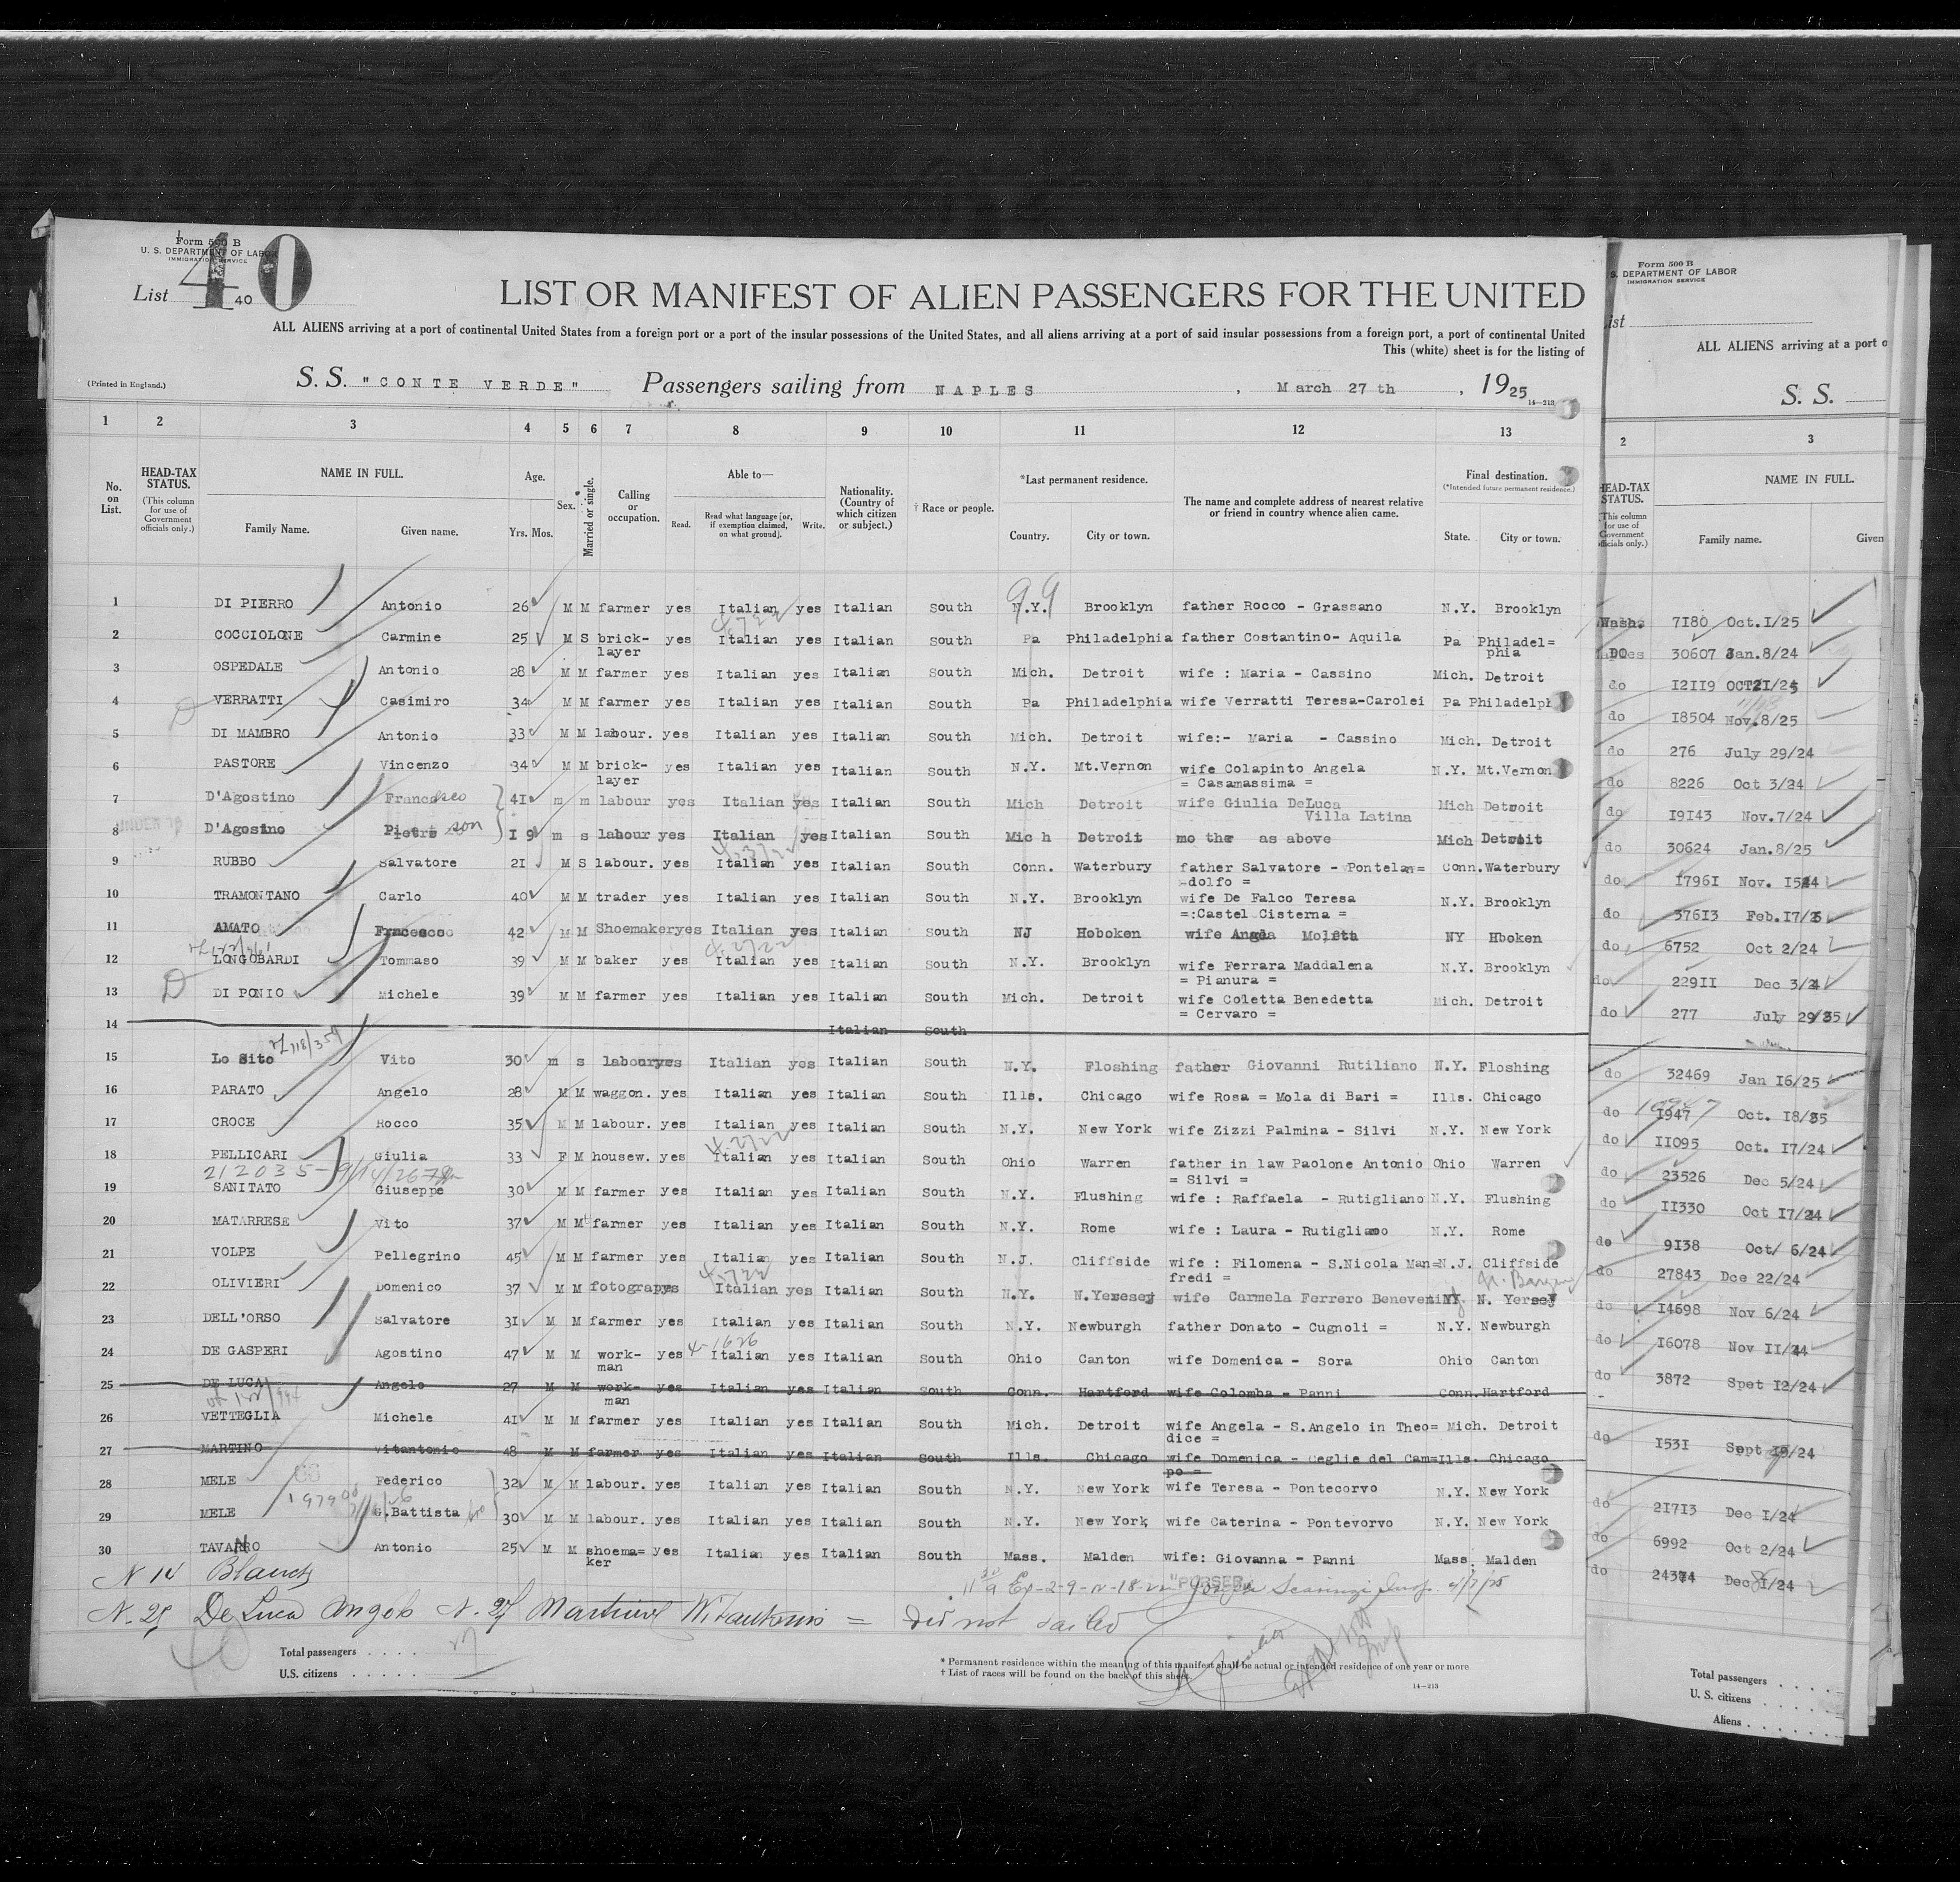 Form 500 B
U. S. DEPARTMENT OF LABOR
IMMIGRATION SERVICE
List 40
40
LIST OR MANIFEST OF ALIEN PASSENGERS FOR THE UNITED
ALL ALIENS arriving at a port of continental United States from a foreign port or a port of the insular possessions of the United States, and all aliens arriving at a port of said insular possessions from a foreign port, a port of continental United
This (white) sheet is for the listing of
(Printed in England.)
S. S. "CONTE VERDE" Passengers sailing from NAPLES , March 27 th , 1925
14—213
1 2 3 4 5 6 7 8 9 10 11 12 13
No. on List.
HEAD-TAX STATUS. (This column for use of Government officials only.)
NAME IN FULL. Family Name. Given name.
Age. Yrs. Mos.
Sex.
Married or single.
Calling or occupation.
Able to— Read. Read what language [or, if exemption claimed, on what ground]. Write.
Nationality. (Country of which citizen or subject.)
† Race or people.
*Last permanent residence. Country. City or town.
The name and complete address of nearest relative or friend in country whence alien came.
Final destination. (*Intended future permanent residence.) State. City or town.
99
1 DI PIERRO Antonio 26 M M farmer yes Italian yes Italian South N.Y. Brooklyn father Rocco - Grassano N.Y. Brooklyn
2 COCCIOLONE Carmine 25 M S brick- yes Italian yes Italian South Pa Philadelphia father Costantino- Aquila Pa Philadel=
layer phia
3 OSPEDALE Antonio 28 M M farmer yes Italian yes Italian South Mich. Detroit wife : Maria - Cassino Mich. Detroit
4 VERRATTI Casimiro 34 M M farmer yes Italian yes Italian South Pa Philadelphia wife Verratti Teresa-Carolei Pa Philadelph
5 DI MAMBRO Antonio 33 M M labour. yes Italian yes Italian South Mich. Detroit wife:- Maria - Cassino Mich. Detroit
6 PASTORE Vincenzo 34 M M brick- yes Italian yes Italian South N.Y. Mt.Vernon wife Colapinto Angela N.Y. Mt.Vernon
layer = Casamassima =
7 D'Agostino Francesco 41 m m labour yes Italian yes Italian South Mich Detroit wife Giulia DeLuca Mich Detroit
Villa Latina
UNDER
8 D'Agosino Pietro son I 9 m s labour yes Italian yes Italian South Mic h Detroit mo ther as above Mich Detroit
9 RUBBO Salvatore 21 M S labour. yes Italian yes Italian South Conn. Waterbury father Salvatore - Pontelan= Conn. Waterbury
-dolfo =
10 TRAMONTANO Carlo 40 M M trader yes Italian yes Italian South N.Y. Brooklyn wife De Falco Teresa N.Y. Brooklyn
=:Castel Cisterna =
11 AMATO Francesco 42 M M Shoemaker yes Italian yes Italian South NJ Hoboken wife Angela NY Hboken
12 LONGOBARDI Tommaso 39 M M baker yes Italian yes Italian South N.Y. Brooklyn wife Ferrara Maddalena N.Y. Brooklyn
= Pianura =
D
13 DI PONIO Michele 39 M M farmer yes Italian yes Italian South Mich. Detroit wife Coletta Benedetta Mich. Detroit
= Cervaro =
14 Italian South
15 Lo Sito Vito 30 m s labour yes Italian yes Italian South N.Y. Floshing father Giovanni Rutiliano N.Y. Floshing
16 PARATO Angelo 28 M M waggon. yes Italian yes Italian South Ills. Chicago wife Rosa = Mola di Bari = Ills. Chicago
17 CROCE Rocco 35 M M labour. yes Italian yes Italian South N.Y. New York wife Zizzi Palmina - Silvi N.Y. New York
18 PELLICARI Giulia 33 F M housew. yes Italian yes Italian South Ohio Warren father in law Paolone Antonio Ohio Warren
= Silvi =
19 SANITATO Giuseppe 30 M M farmer yes Italian yes Italian South N.Y. Flushing wife : Raffaela - Rutigliano N.Y. Flushing
20 MATARRESE Vito 37 M M farmer yes Italian yes Italian South N.Y. Rome wife : Laura - Rutigliano N.Y. Rome
21 VOLPE Pellegrino 45 M M farmer yes Italian yes Italian South N.J. Cliffside wife : Filomena - S.Nicola Man= N.J. Cliffside
fredi =
22 OLIVIERI Domenico 37 M M fotograp yes Italian yes Italian South N.Y. N.Yersey wife Carmela Ferrero N. Yersey
23 DELL'ORSO Salvatore 31 M M farmer yes Italian yes Italian South N.Y. Newburgh father Donato - Cugnoli = N.Y. Newburgh
24 DE GASPERI Agostino 47 M M work- yes Italian yes Italian South Ohio Canton wife Domenica - Sora Ohio Canton
man
25 DE LUCA Angelo 27 M M work- yes Italian yes Italian South Conn. Hartford wife Colomba - Panni Conn. Hartford
man
26 VETTEGLIA Michele 41 M M farmer yes Italian yes Italian South Mich. Detroit wife Angela - S.Angelo in Theo= Mich. Detroit
dice =
27 MARTINO Vitantonio 48 M M farmer yes Italian yes Italian South Ills. Chicago wife Domenica - Ceglie del Cam= Ills. Chicago
po =
28 MELE Federico 32 M M labour. yes Italian yes Italian South N.Y. New York wife Teresa - Pontecorvo N.Y. New York
29 MELE G.Battista 30 M M labour. yes Italian yes Italian South N.Y. New York wife Caterina - Pontevorvo N.Y. New York
30 TAVARRO Antonio 25 M M shoema= yes Italian yes Italian South Mass. Malden wife: Giovanna - Panni Mass. Malden
ker
N 14 Blanch
"PURSER"
De Luca Angelo = did not sailed
Total passengers . . . .
U.S. citizens . . . . .
* Permanent residence within the meaning of this manifest shall be actual or intended residence of one year or more
† List of races will be found on the back of this sheet.
14—213
Form 500 B
S. DEPARTMENT OF LABOR
IMMIGRATION SERVICE
ist
ALL ALIENS arriving at a port o
S. S.
2 3
HEAD-TAX STATUS. This column for use of Government officials only.)
NAME IN FULL.
Family name. Given
Wash. 7180 Oct.I/25
DO 30607 Jan.8/24
do I2II9 OCT2I/25
do I8504 Nov.8/25
do 276 July 29/24
do 8226 Oct 3/24
do I9I43 Nov.7/24
do 30624 Jan.8/25
do I796I Nov. I5/24
do 37613 Feb.I7/25
do 6752 Oct 2/24
do 229II Dec 3/24
do 277 July 29/35
do 32469 Jan I6/25
do I947 Oct. I8/35
do II095 Oct. I7/24
do 23526 Dec 5/24
do II330 Oct I7/24
do 9I38 Oct/ 6/24
do 27843 Dce 22/24
do I4698 Nov 6/24
do I6078 Nov II/24
do 3872 Spet I2/24
do I53I Sept I9/24
do 2I7I3 Dec I/24
do 6992 Oct 2/24
do 24374 Dec 8/24
Total passengers . . . .
U. S. citizens . . . .
Aliens . . . . . .